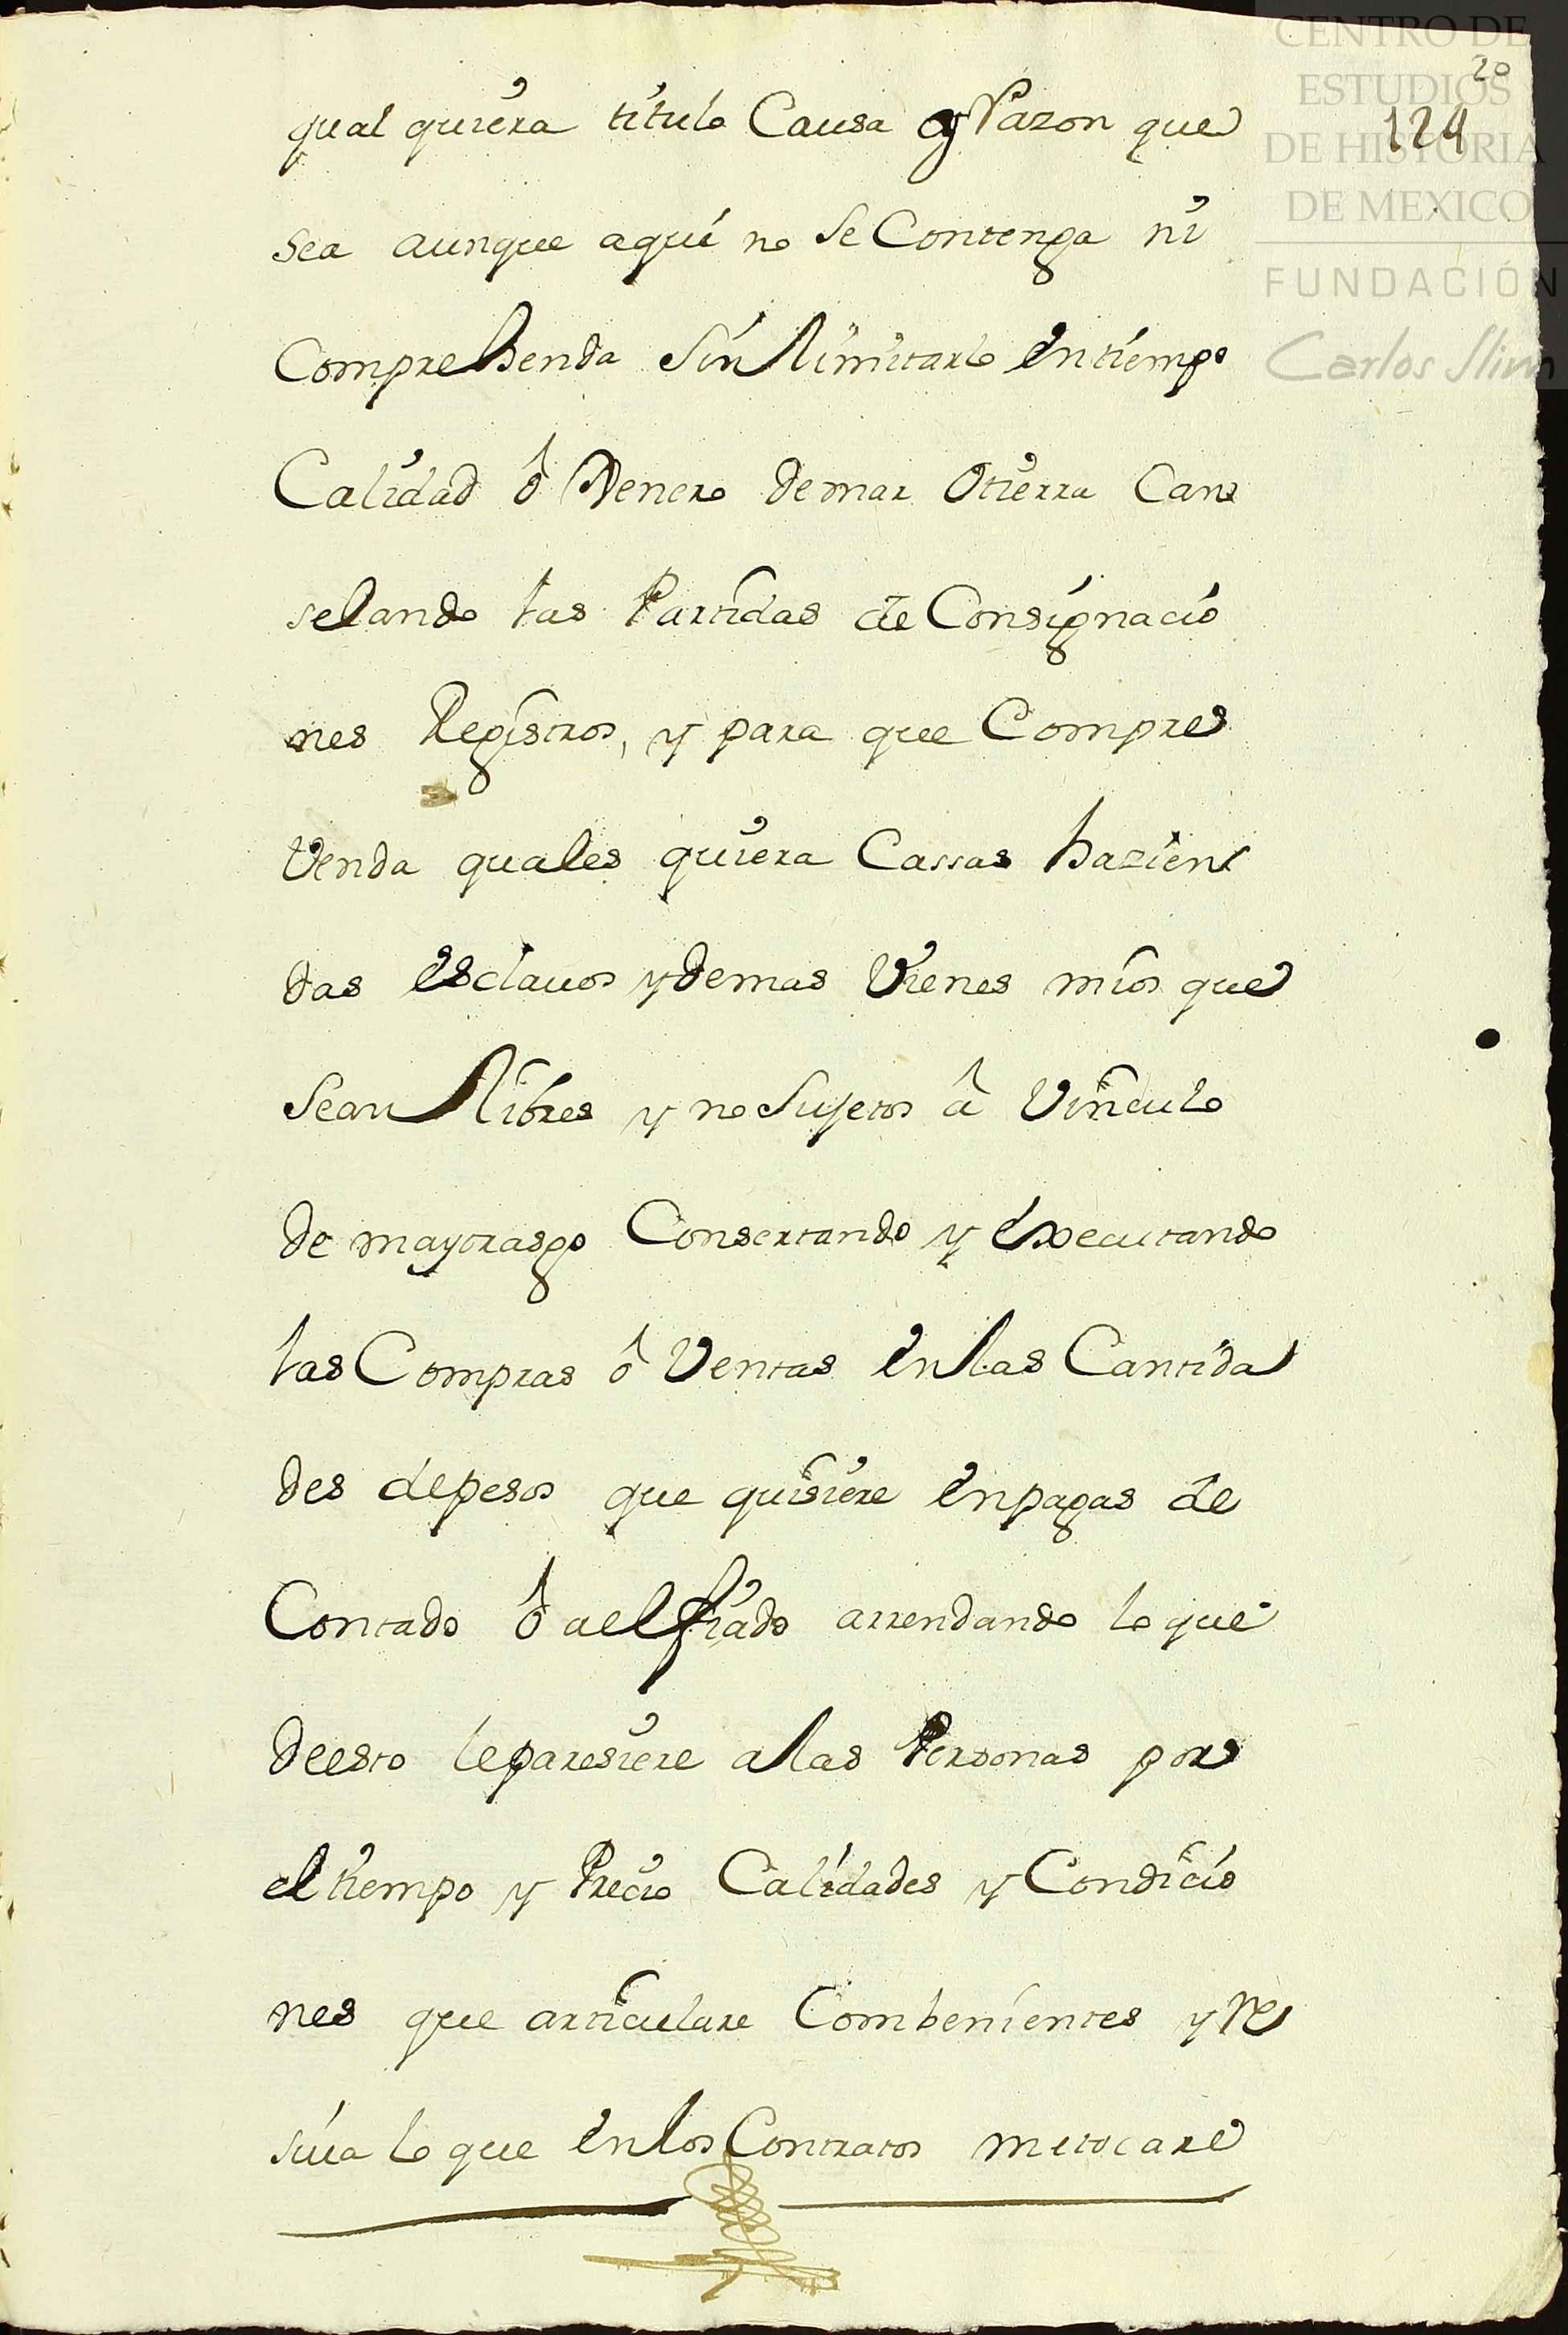 CENTRO DE
ESTUDIOS
DE HISTORIA
DE MEXICO
FUNDACIÓN
Carlos Slim
20
124
qual quiera titulo Causa y Razon que
sea aunque aqui no se Contenga ni
Comprehenda sin limitarlo en tiempo
Calidad ô Genero de mar o tierra Can
selando las Partidas de Consignacio
nes Registros, y para que Compre
Venda quales quiera Cassas hazien
das esclauos y demas Vienes mios que
Sean libres y no Sujetos â Vinculo
de mayorasgo Consertando y executando
las Compras ô Ventas en las Cantida
des de pesos que quisiere en pagas de
Contado ô a el fiado arrendando lo que
de esto le paresiere a las Personas por
el tiempo y Precio Calidades y Condicio
nes que articulare Combenientes y re
siua lo que en los Contratos me tocare